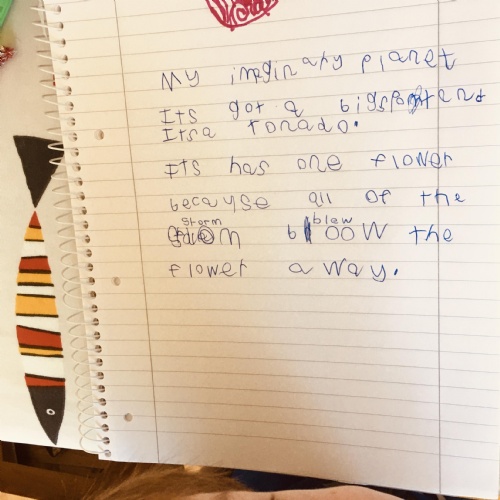 My imginary planet
Its got a big spot and
Its a tonado.
Its has one flower
because all of the
storm blew
bloow the
flower a way.